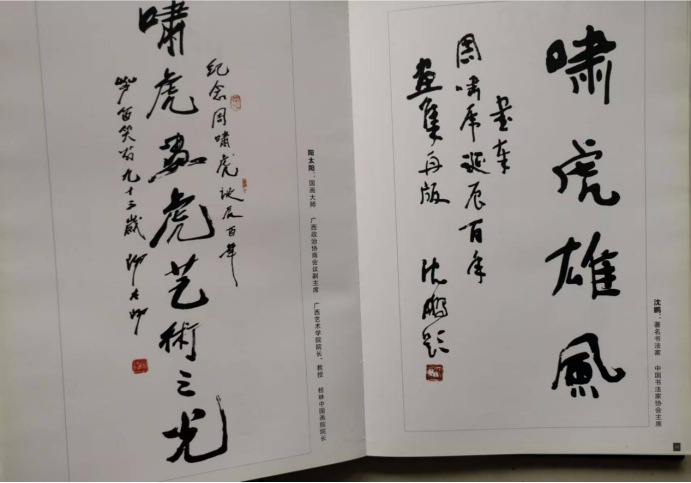 嘯虎画虎艺術之光
纪念周嘯虎诞辰百年
芦笛笑翁九十三歲 阳太阳
阳太阳：国画大师 广西政治协商会议副主席 广西艺术学院院长、教授 桂林中国画院院长
嘯虎雄風
周嘯虎诞辰百年
画集再版
沈鹏题
沈鹏：著名书法家 中国书法家协会主席